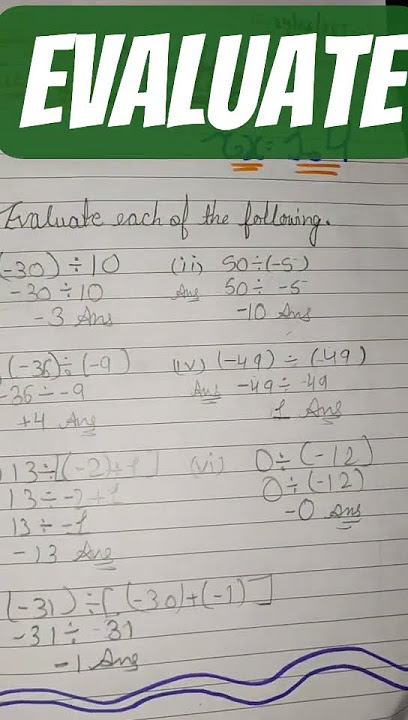 EVALUATE
Ex: 1.4
Evaluate each of the following.
(-30) ÷ 10 (ii) 50÷(-5)
-30 ÷ 10 Ans 50 ÷ -5
-3 Ans -10 Ans
(-36)÷(-9) (iv) (-49) ÷ (-49)
-36 ÷ -9 Ans -49 ÷ -49
+4 Ans 1 Ans
13÷[(-2)+1] (vi) 0÷(-12)
13 ÷ -2+1 0÷(-12)
13 ÷ -1 -0 Ans
-13 Ans
(-31)÷[(-30)+(-1)]
-31 ÷ -31
-1 Ans